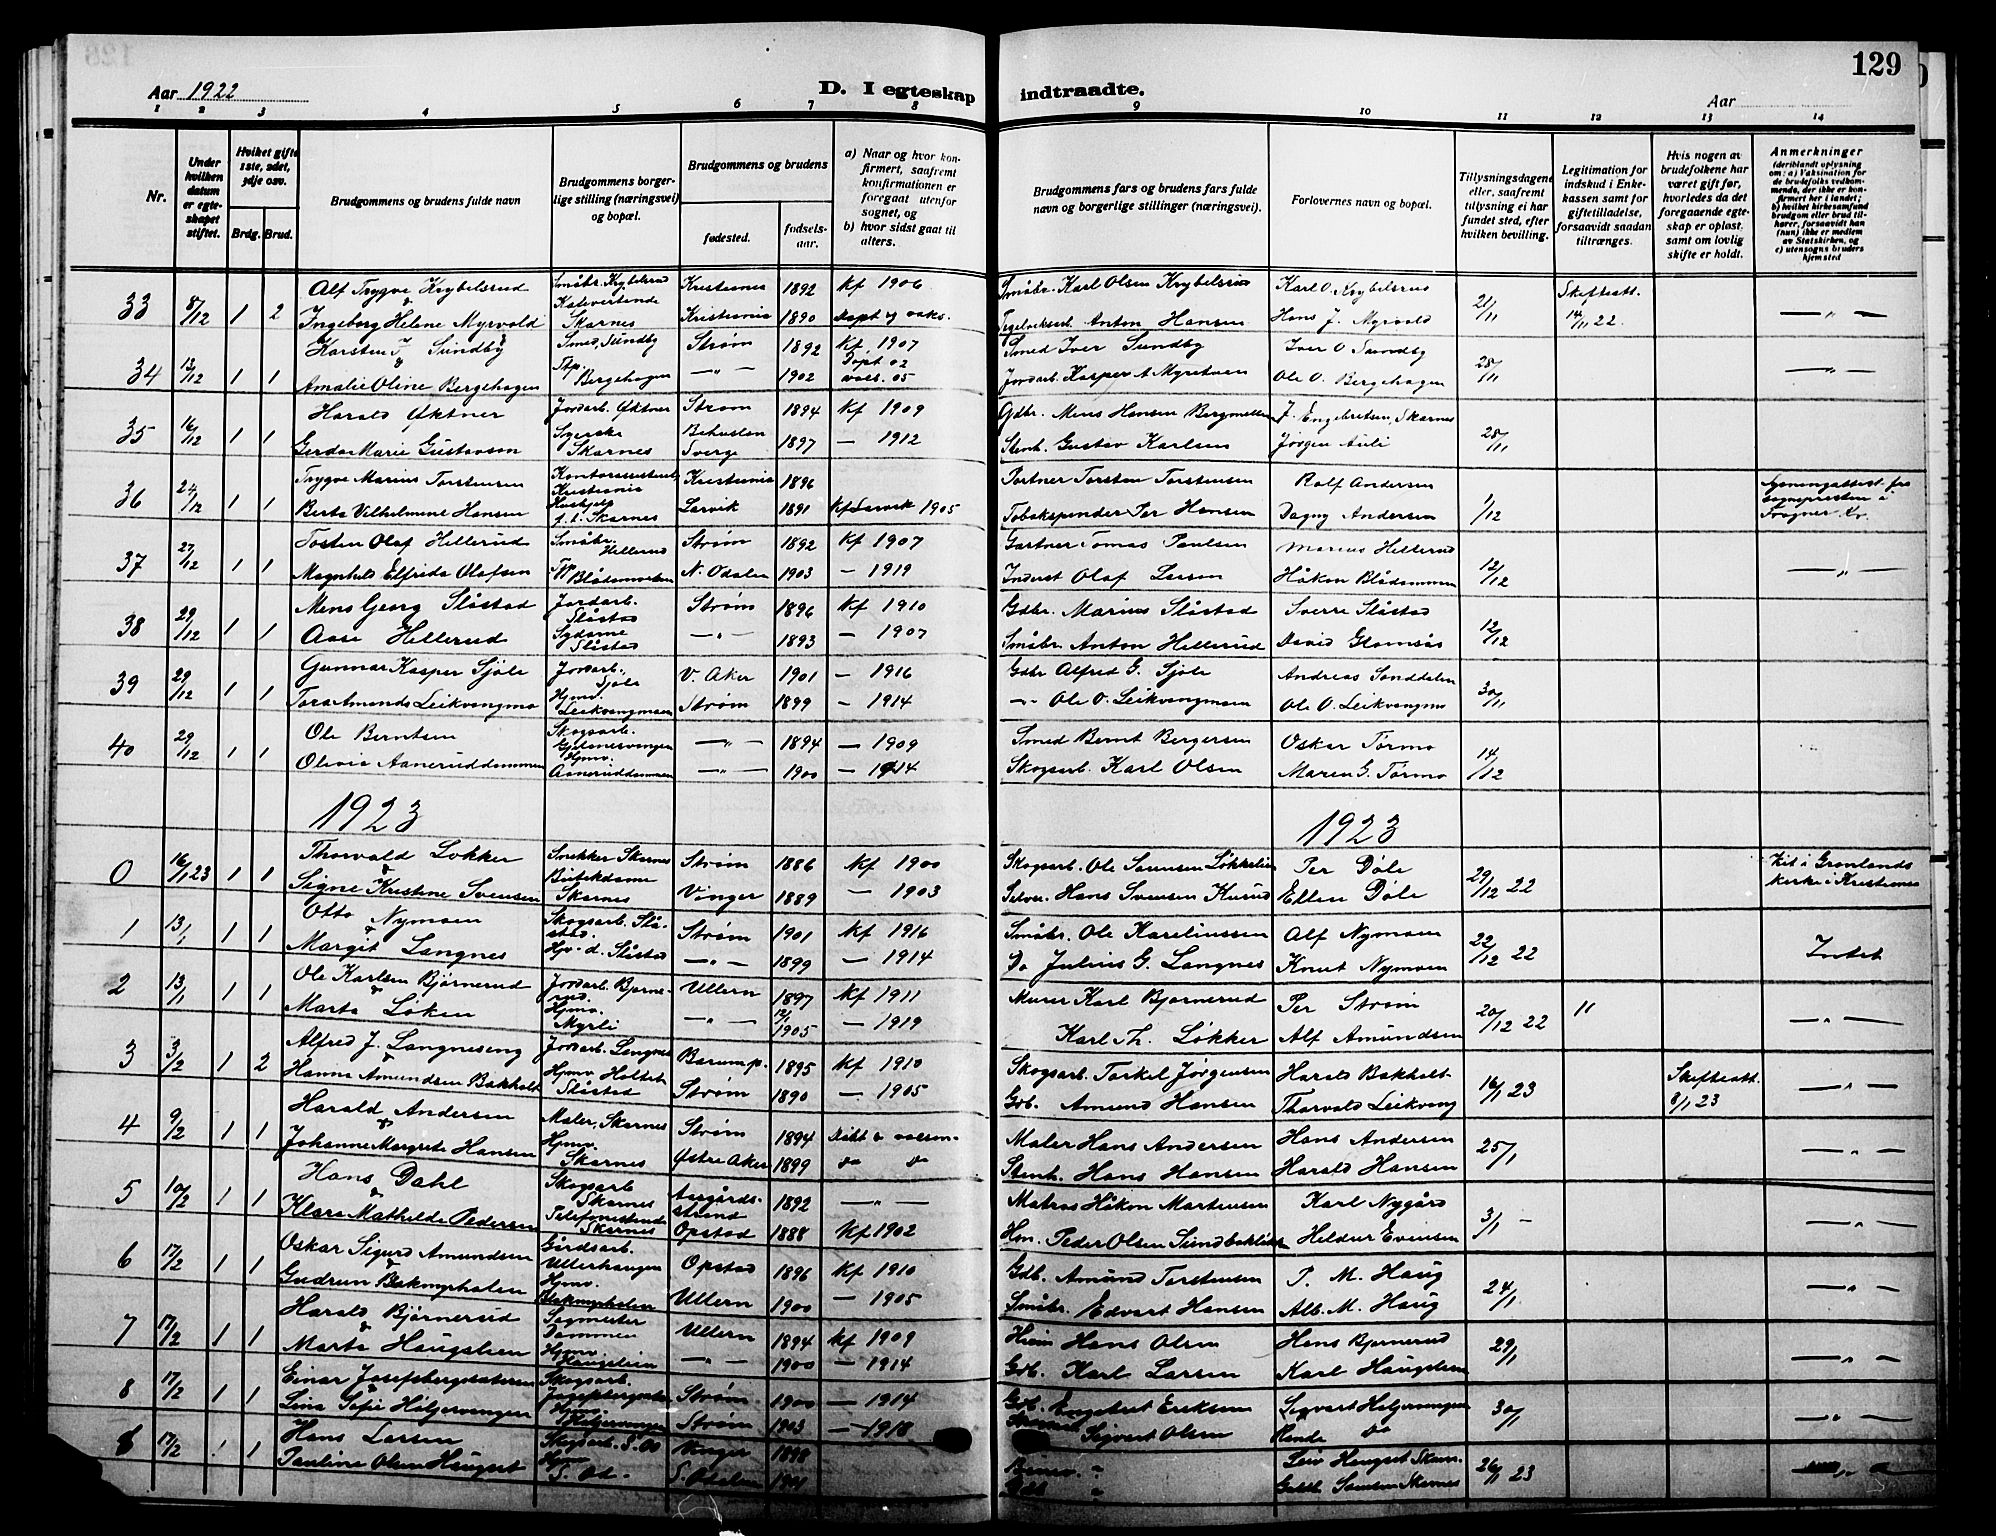 129
Aar 1922
D. I egteskap indtraadte.
Aar
1 2 3 4 5 6 7 8 9 10 11 12 13 14
Nr.
Under hvilken datum er egteskapet stiftet.
Hvilket gifte 1ste, 2det, 3dje osv.
Brdg. Brud.
Brudgommens og brudens fulde navn
Brudgommens borgerlige stilling (næringsvei) og bopæl.
Brudgommens og brudens
fødested.
fødselsaar.
a) Naar og hvor konfirmert, saafremt konfirmationen er foregaat utenfor sognet, og
b) hvor sidst gaat til alters.
Brudgommens fars og brudens fars fulde navn og borgerlige stillinger (næringsvei).
Forlovernes navn og bopæl.
Tillysningsdagene eller, saafremt tillysning ei har fundet sted, efter hvilken bevilling.
Legitimation for indskud i Enkekassen samt for giftetilladelse, forsaavidt saadan tiltrænges.
Hvis nogen av brudefolkene har været gift før, hvorledes da det foregaaende egteskap er opløst, samt om lovlig skifte er holdt.
Anmerkninger
(deriblandt oplysning om: a) Vaksination for de brudefolks vedkommende, der ikke er konfirmert her i landet; b) hvilket kirkesamfund brudgom eller brud tilhører, forsaavidt han (hun) ikke er medlem av Statskirken, og c) utensogns bruders hjemsted
33 8/12 1 2 Alf Trygve Krybelsrud Småbr. Krybelsrud Kristiania 1892 kf 1906 Småbr. Karl Olsen Krybelsrud Karl O. Krybelsrud 21/11 Skifteatt. 14/11 22.
& Ingeborg Helene Myrvold Skarnes Kristiania 1890 Anton Hansen Hans J. Myrvold
34 12/12 1 1 Karsten I Sundby Smed, Sundby Strøm 1892 kf. 1907 Smed Iver Sundby Iver O Sundby 28/11
& Amalie Oline Bergehagen Bergehagen 1902 Døpt 02 Jordarb. Kasper A Myretvan Ole O. Bergehagen
35 16/12 1 1 Harald Øktner Jordarb. Øktner Strøm 1894 kf 1909 Gdbr. Mens Hansen J. Engebretsen, Skarnes 28/11
Gerda Marie Gustavson Skarnes Sverge 1897 — 1912 Stenh. Gustav Karlsen Jørgen Auli
36 24/12 1 1 Trygve Marius Torstensen Kontorassistent, Kristiania Kristiania 1896 Portner Torsten Torstensen Rolf Andersen 1/12
Berta Vilhelmine Hansen f. t. Skarnes Larvik 1891 kf Larvik 1905 Tobakspinder Per Hansen Dagny Andersen
37 27/12 1 1 Tosten Olaf Hellerud Småbr. Hellerud Strøm 1892 kf 1907 Gartner Tomas Paulsen Marius Hellerud 12/12
Magnhild Elfrida Olafsen N. Odalen 1903 — 1919 Inderst Olaf Larsen Håkon Blådammen
38 29/12 1 1 Mens Georg Slåstad Jordarb. Slåstad Strøm 1896 kf 1910 Gdbr. Marius Slåstad Sverre Slåstad 12/12
Aase Hellerud Sydame Slåstad 1893 — 1907 Småbr. Anton Hellerud David Glomsås
39 29/12 1 1 Gunnar Kasper Sjøle Jordarb. Sjøle V. Aker 1901 — 1916 Gdbr Alfred G. Sjøle Andreas Sanddalen 30/11
Tora Amanda Leikvangmo Hjmv. Leikvangmoen Strøm 1899 — 1914 Ole O. Leikvangmoen Ole O. Leikvangmo
40 29/12 1 1 Ole Berntsen Skogsarb. 1894 — 1909 Smed Bernt Bergersen Oskar Tormo 14/12
Olivia Aaneruddammen Hjmv. Aaneruddammen 1900 — 1914 Skogsarb. Karl Olsen Maren G. Tørmo
1923 1923
0 16/1 23 1 1 Thorvald Løkker Snekker Skarnes Strøm 1886 kf 1900 Skogsarb. Ole Sørensen Løkkelien Per Døle 29/12 22 Vit i Grønlands kirke i Kristiania
& Signe Kristine Svensen Butikdame Skarnes Vinger 1889 — 1903 Selvei. Hans Svensen Kurud Ellen Døle
1 13/1 1 1 Otto Nymoen Skogsarb. Slåstad. Strøm 1901 kf 1916 Småbr. Ole Kareliussen Alf Nymoen 22/12 22 Intet
& Margit Langnes Slåstad 1899 — 1914 Do Julius G. Langnes Knut Nymoen
2 13/1 1 1 Ole Karlsen Bjørnerud Jordarb. Bjørnerud. Ullern 1897 kf 1911 Murer Karl Bjørnerud Per Strøm 20/12 22 "
& Marta Løken Hjmv. Myrli 12/1 1905 — 1919 Karl Th. Løkker Alf Amundsen
3 3/2 1 2 Alfred J. Langneseng Jordarb. Langnes Bærum p. 1895 kf 1910 Skogsarb. Torkel Jørgensen Harald Bakholt 16/1 23 Skifteatt. 8/1 23
& Hanna Amundsen Bakholt Hjmv Holtet Slåstad Strøm 1890 — 1905 Gb. Amund Hansen Thorvald Leikvang
4 9/2 1 1 Harald Andersen Maler, Skarnes Strøm 1894 Maler Hans Andersen Hans Andersen 25/1
& Johanne Margrete Hansen Hjmv Skarnes Østre Aker 1899 do do Stenh. Hans Hansen Harald Hansen
5 10/2 1 1 Hans Dahl Skogsarb Skarnes Aasgårdsstrand 1892 Matros Håkon Martensen Karl Nygård 3/1 -
& Klara Mathilde Pedersen Skarnes Opstad 1888 kf 1902 Peder Olsen Heldur Evensen
6 17/2 1 1 Oskar Sigurd Amundsen Gårdsarb. Ullerhaugen Opstad 1896 kf 1910 Gdb. Amund Torstensen P. M. Haug 24/1
& Gudrun Bakmyrhalen Hjmv. Bakmyrhalen Ullern 1900 — 1905 Småbr. Edvart Hansen Alb. M. Haug
7 17/2 1 1 Harald Bjørnerud Sagmester Dammen Ullern 1894 kf 1909 Hans Olsen Hans Bjørnerud 29/1
& Marta Haugslien Hjmv. Haugslien 1900 — 1914 Gb. Karl Larsen Karl Haugslien
8 17/2 1 1 Einar Josefbergsætersen Skogsarb. Strøm 1900 — 1914 Gb. Engebret Eriksen Sigvart Holjervangen 30/1
Lina Sofie Holjervangen Hjmv Holjervangen Strøm 1903 — 1918 Sigvart Olsen do
17/2 1 1 Hans Larsen Skogsarb. S. Od Vinger 1898 26/1 23
Pauline Olsen Haugset Hjmv S. Od. S. Odalen 1901 Skarnes